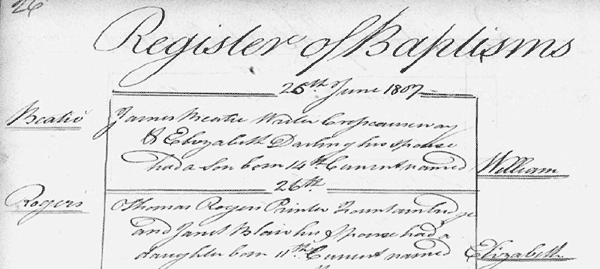 26
Register of Baptisms
25th June 1807
Beatie
James Beatie Writer Crosscauseway
& Elizabeth Darling his spouse
had a son born 14th Current named William
26th
Rogers
Thomas Rogers Printer Fountainbridge
and Janet Blair his Spouse had a
daughter born 11th Current named Elizabeth